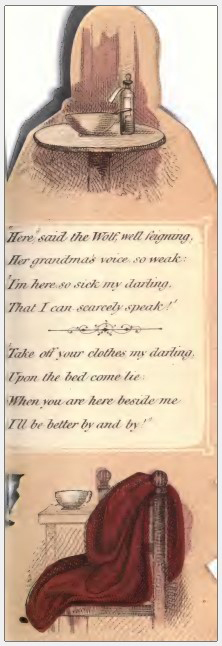 'Here,' said the Wolf, well feigning,
Her grandma's voice so weak:
'I'm here, so sick my darling,
That I can scarcely speak!'
'Take off your clothes my darling,
Upon the bed come lie:
When you are here beside me
I'll be better by and by!'